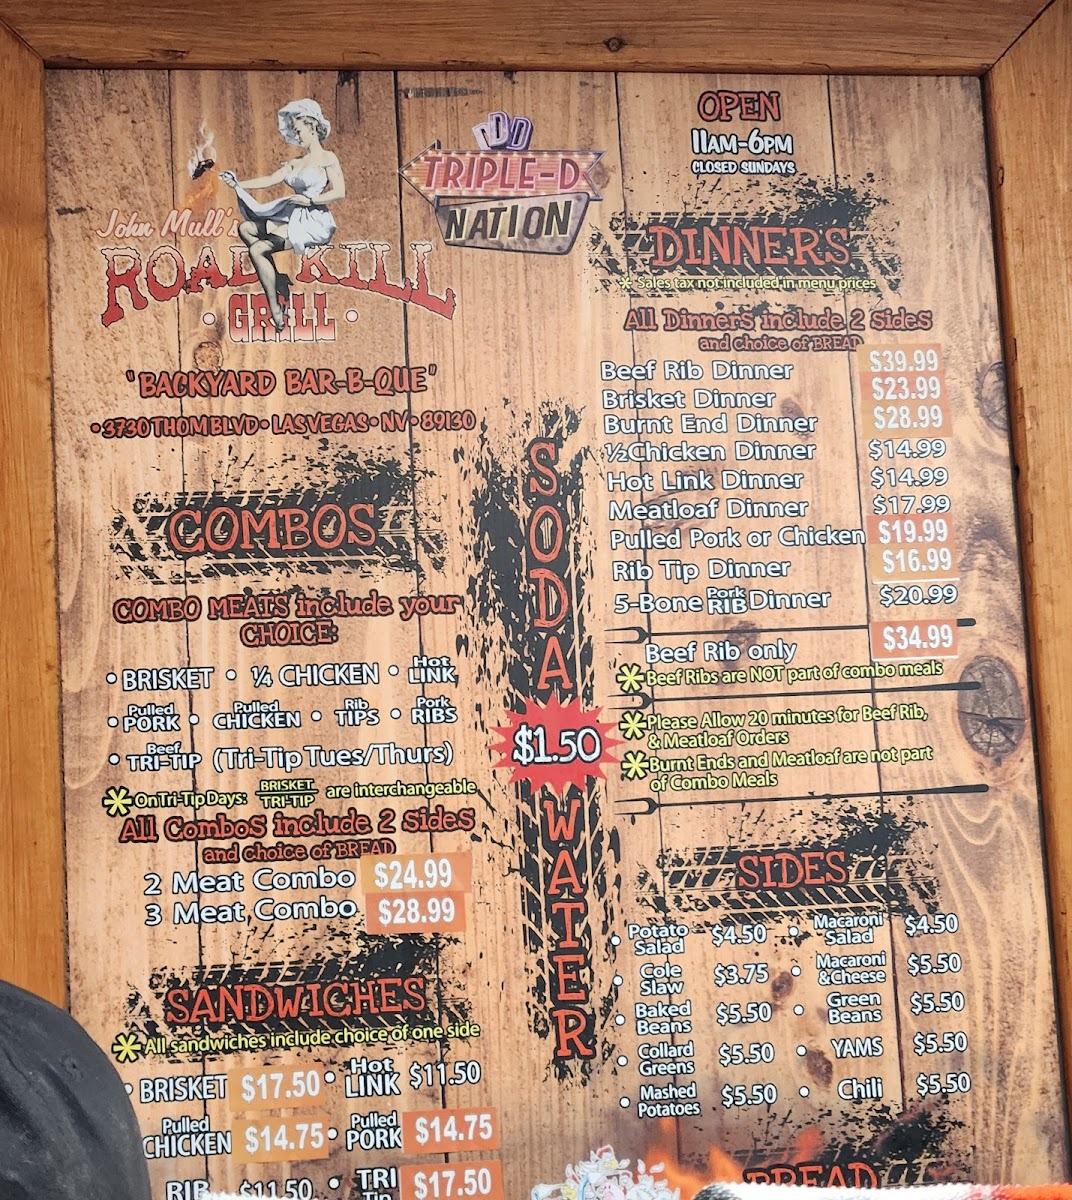 John Mull's
ROAD KILL
• GRILL •
"BACKYARD BAR-B-QUE"
• 3730 THOM BLVD • LAS VEGAS • NV • 89130
DDD
TRIPLE-D
NATION
OPEN
11AM-6PM
CLOSED SUNDAYS
COMBOS
COMBO MEATS include your
CHOICE:
• BRISKET • ¼ CHICKEN • Hot LINK
• Pulled PORK • Pulled CHICKEN • Rib TIPS • Pork RIBS
• Beef TRI-TIP (Tri-Tip Tues/Thurs)
* On Tri-Tip Days: BRISKET TRI-TIP are interchangeable
All Combos include 2 sides
and choice of BREAD
2 Meat Combo $24.99
3 Meat Combo $28.99
SANDWICHES
* All sandwiches include choice of one side
• BRISKET $17.50 • Hot LINK $11.50
Pulled CHICKEN $14.75 • Pulled PORK $14.75
RIB $11.50 • TRI Tip $17.50
SODA
$1.50
WATER
DINNERS
* Sales tax not included in menu prices
All Dinners include 2 sides
and choice of BREAD
Beef Rib Dinner $39.99
Brisket Dinner $23.99
Burnt End Dinner $28.99
½ Chicken Dinner $14.99
Hot Link Dinner $14.99
Meatloaf Dinner $17.99
Pulled Pork or Chicken $19.99
Rib Tip Dinner $16.99
5-Bone Pork RIB Dinner $20.99
Beef Rib only $34.99
* Beef Ribs are NOT part of combo meals
* Please Allow 20 minutes for Beef Rib,
& Meatloaf Orders
* Burnt Ends and Meatloaf are not part
of Combo Meals
SIDES
• Potato Salad $4.50 • Macaroni Salad $4.50
• Cole Slaw $3.75 • Macaroni & Cheese $5.50
• Baked Beans $5.50 • Green Beans $5.50
• Collard Greens $5.50 • YAMS $5.50
• Mashed Potatoes $5.50 • Chili $5.50
BREAD